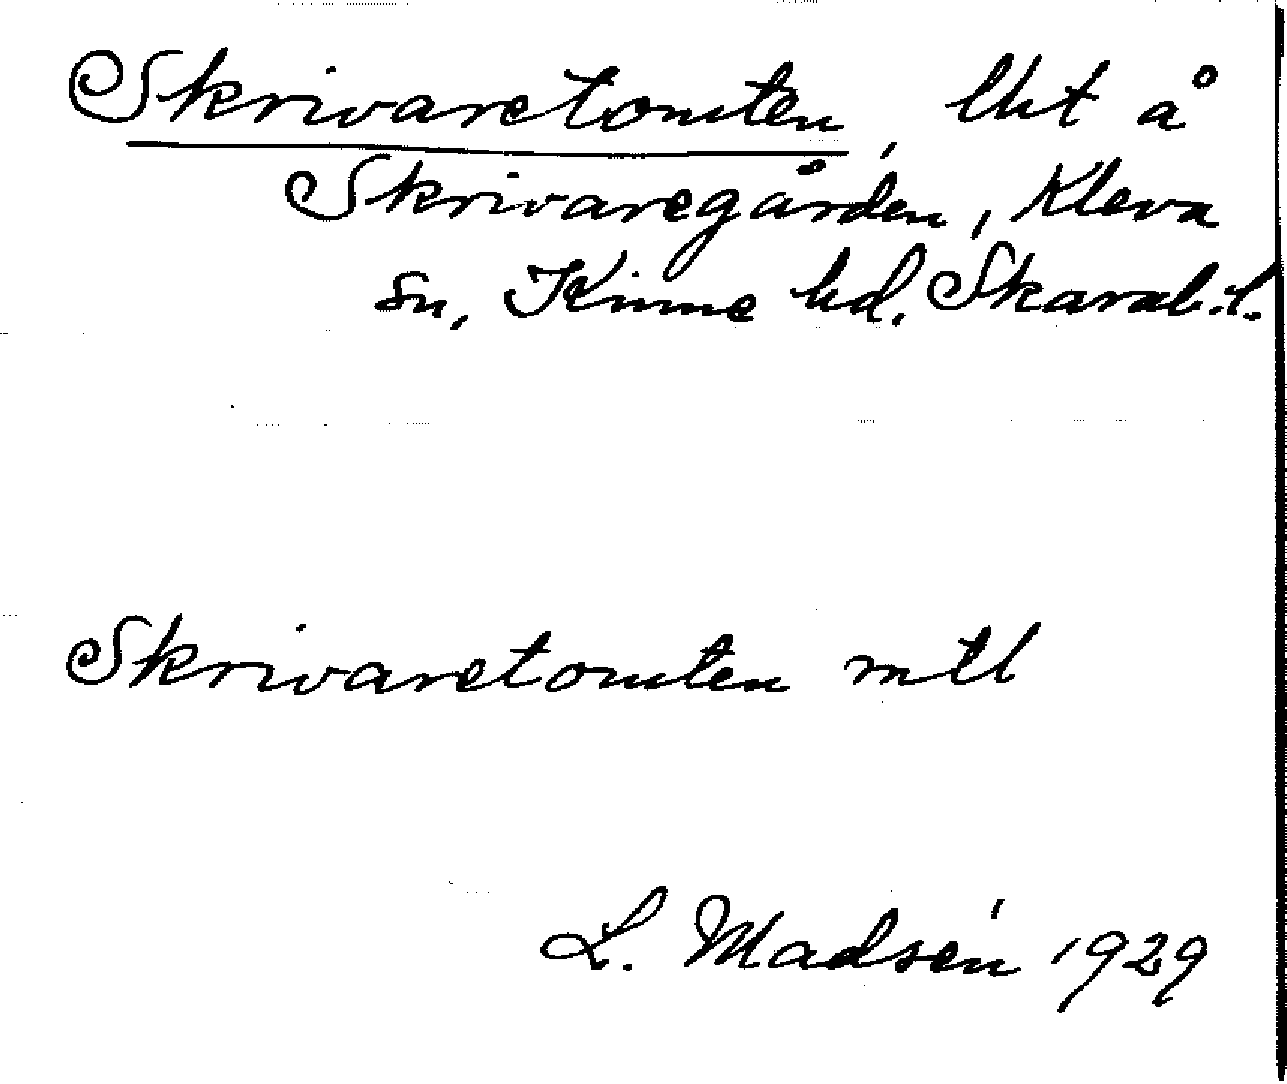 Skrivaretomten, lht å
Skrivaregården, Kleva
sn, Kinne hd. Skarab. l.
Skrivaretomten mtl
L. Madsén 1929